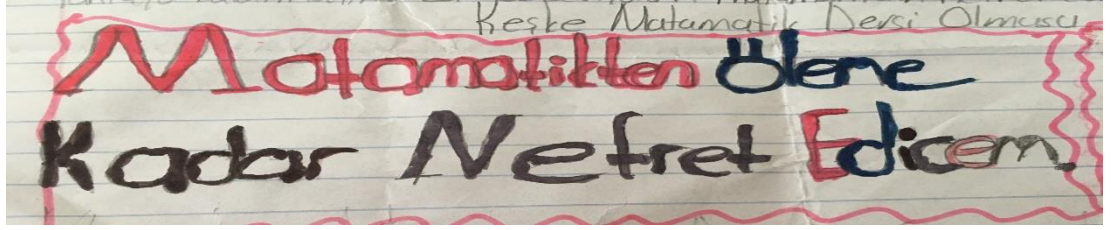 Keşke Matamatik Dersi Olmasa
Matamatikten Ölene
Kadar Nefret Edicem